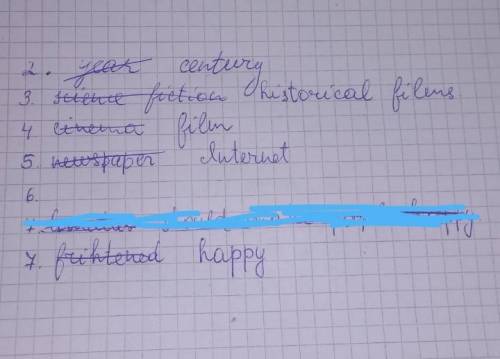 2. year century
3. science fiction historical films
4 cinema film
5. newspaper Internet
6.
7. frihtened happy